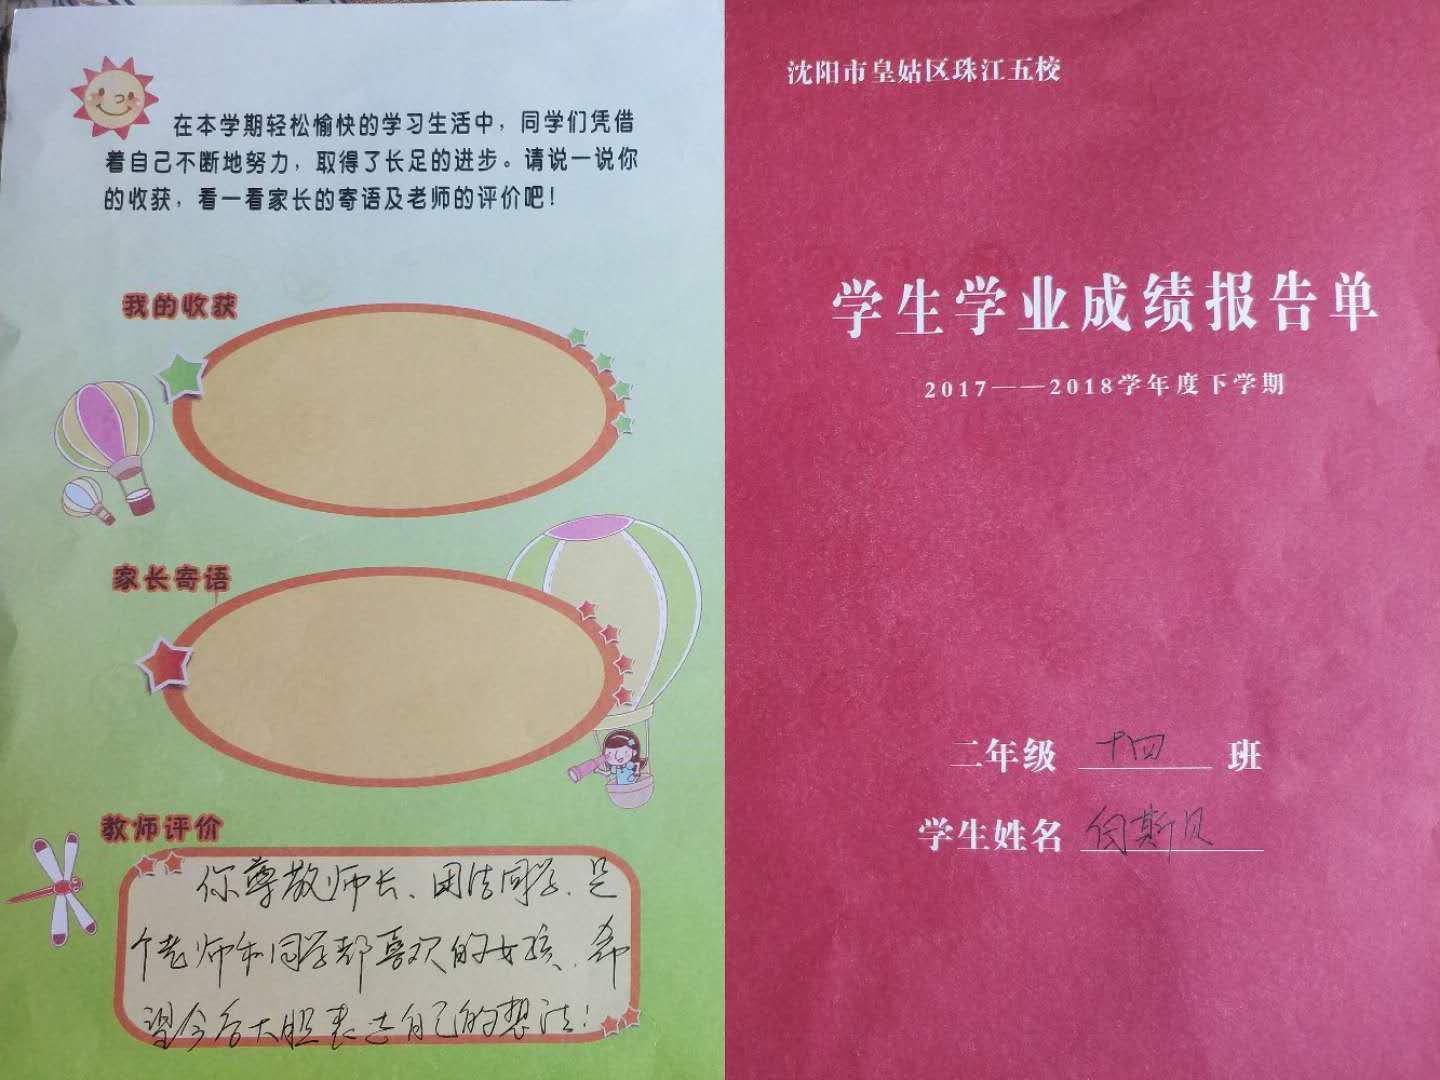 在本学期轻松愉快的学习生活中，同学们凭借
着自己不断地努力，取得了长足的进步。请说一说你
的收获，看一看家长的寄语及老师的评价吧！
我的收获
家长寄语
教师评价
你尊敬师长、团结同学、是
个老师和同学都喜欢的女孩、希
望今后大胆表达自己的想法！
沈阳市皇姑区珠江五校
学生学业成绩报告单
2017——2018学年度下学期
二年级 十四 班
学生姓名 斯贝